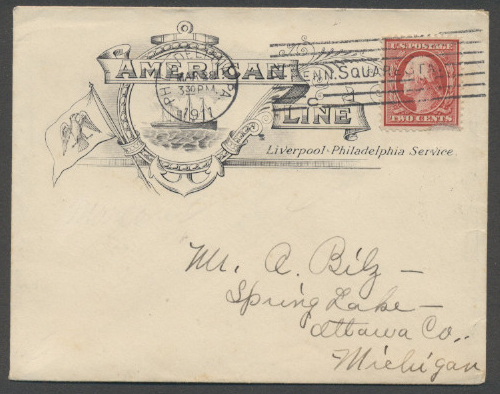 AMERICAN
LINE
Liverpool-Philadelphia Service.
PHILADELPHIA, PA.
MAR
330 PM
1911
PENN. SQUARE STA.
U.S. POSTAGE
TWO CENTS
Mr. A. Bilz —
Spring Lake —
Ottawa Co.,
Michigan